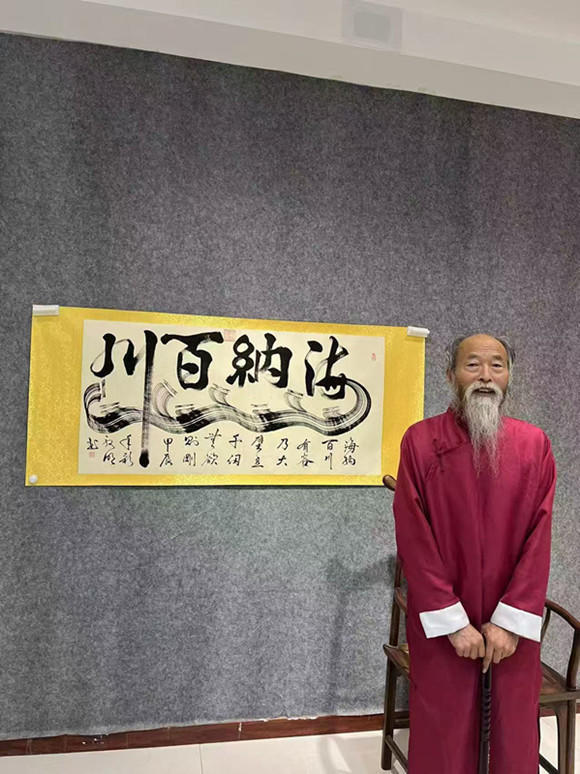 海納百川
海納
百川
有容
乃大
壁立
千仞
無欲
則剛
甲辰
年